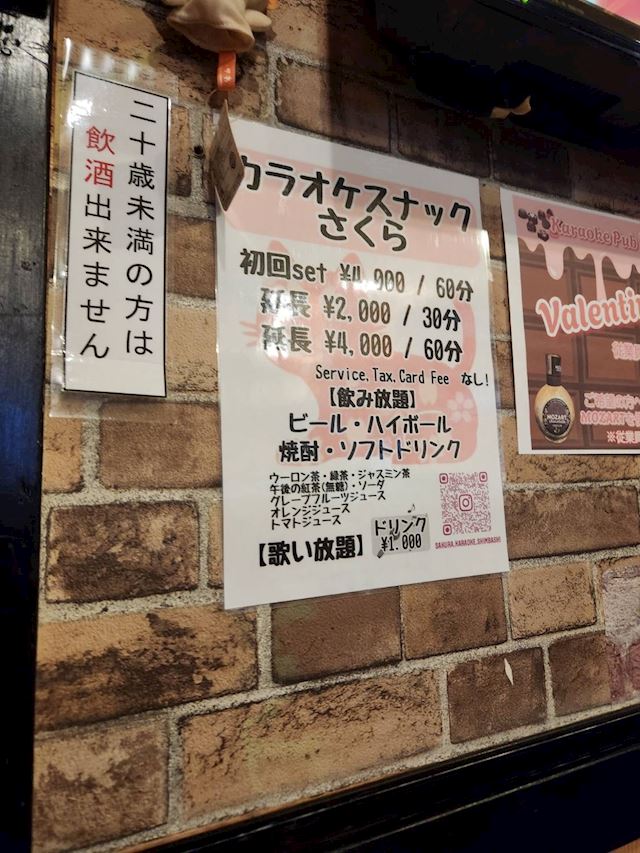 二十歳未満の方は
飲酒出来ません
カラオケスナック
さくら
初回set ¥4,000 / 60分
延長 ¥2,000 / 30分
延長 ¥4,000 / 60分
Service,Tax,Card Fee なし!
【飲み放題】
ビール・ハイボール
焼酎・ソフトドリンク
ウーロン茶・緑茶・ジャスミン茶
午後の紅茶(無糖)・ソーダ
グレープフルーツジュース
オレンジジュース
トマトジュース
【歌い放題】
ドリンク
¥1,000
SAKURA.KARAOKE.SHIMBASHI
Karaoke Pub
Valenti
従業
MOZART
MOZARTを
※従業